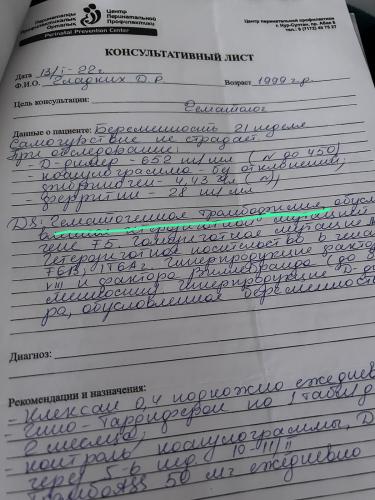 Перинаталдық
Профилактикалық
Орталық
Центр
Перинатальной
Профилактики
Perinatal Prevention Center
Центр перинатальной профилактики
г. Нур-Султан, пр. Абая 8
тел.: 8 (7172) 42 75 27
КОНСУЛЬТАТИВНЫЙ ЛИСТ
Дата 13/I-22г.
Ф.И.О. Гладких Д.Р. Возраст 1999 г.р.
Цель консультации:
Гематолог
Данные о пациенте: Беременность 21 неделя
Самочувствие не страдает.
При обследовании:
- Д-димер - 652 нг/мл (N до 450)
- коагулограмма - без отклонений;
- 4,43 (N)
- ферритин - 28 нг/мл
DS: Гематогенная тромбофилия, обусл
гетерозиготной мутацией
гене F5. Гомозиготное мутацие
Гетерозиготное носительство в гена
F6B, ITGA2. Гиперпродукция фактор
VIII и фактора Виллебранда (до
гиперпродукция D-ди
ра, обусловленное беременность
Диагноз:
Рекомендации и назначения:
- Клексан 0,4 подкожно ежеднев
- Гино-Тардиферон по 1 табл
2 месяца;
- контроль коагулограммы, D
через 5-6 нед. 10-11/II
- ТромбоАSS 50 мг ежедневно